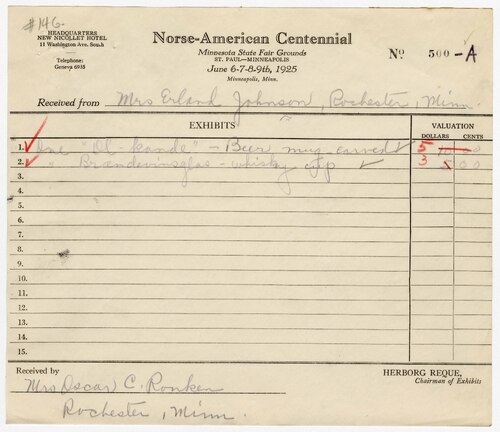 #146-
HEADQUARTERS
NEW NICOLLET HOTEL
11 Washington Ave. South
Telephone:
Geneva 6935
Norse-American Centennial
Minnesota State Fair Grounds
ST. PAUL—MINNEAPOLIS
June 6-7-8-9th, 1925
Minneapolis, Minn.
No 500-A
Received from Mrs Erland Johnson, Rochester, Minn.
EXHIBITS
VALUATION
DOLLARS CENTS
1. One "Öl-kande" - Beer mug-carved 5
2. " Brændevinsglas - whisky cup 3 5 00
3.
4.
5.
6.
7.
8.
9.
10.
11.
12.
13.
14.
15.
Received by
HERBORG REQUE,
Chairman of Exhibits
Mrs Oscar C. Ronken
Rochester, Minn.